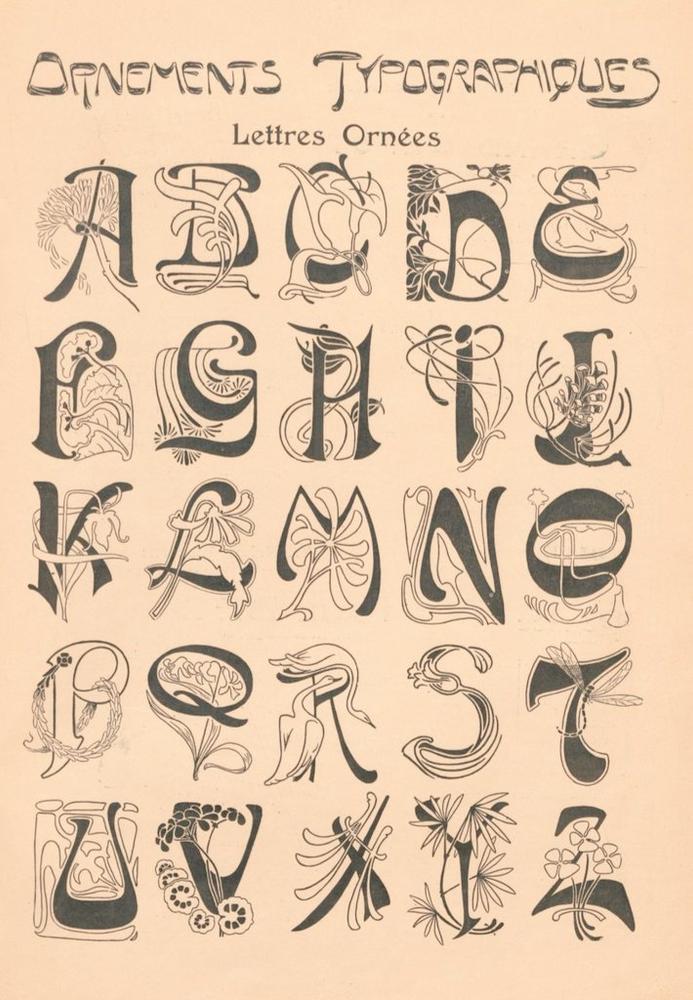 ORNEMENTS TYPOGRAPHIQUES
Lettres Ornées
A B C D E
F G H I J
K L M N O
P Q R S T
U V X Y Z